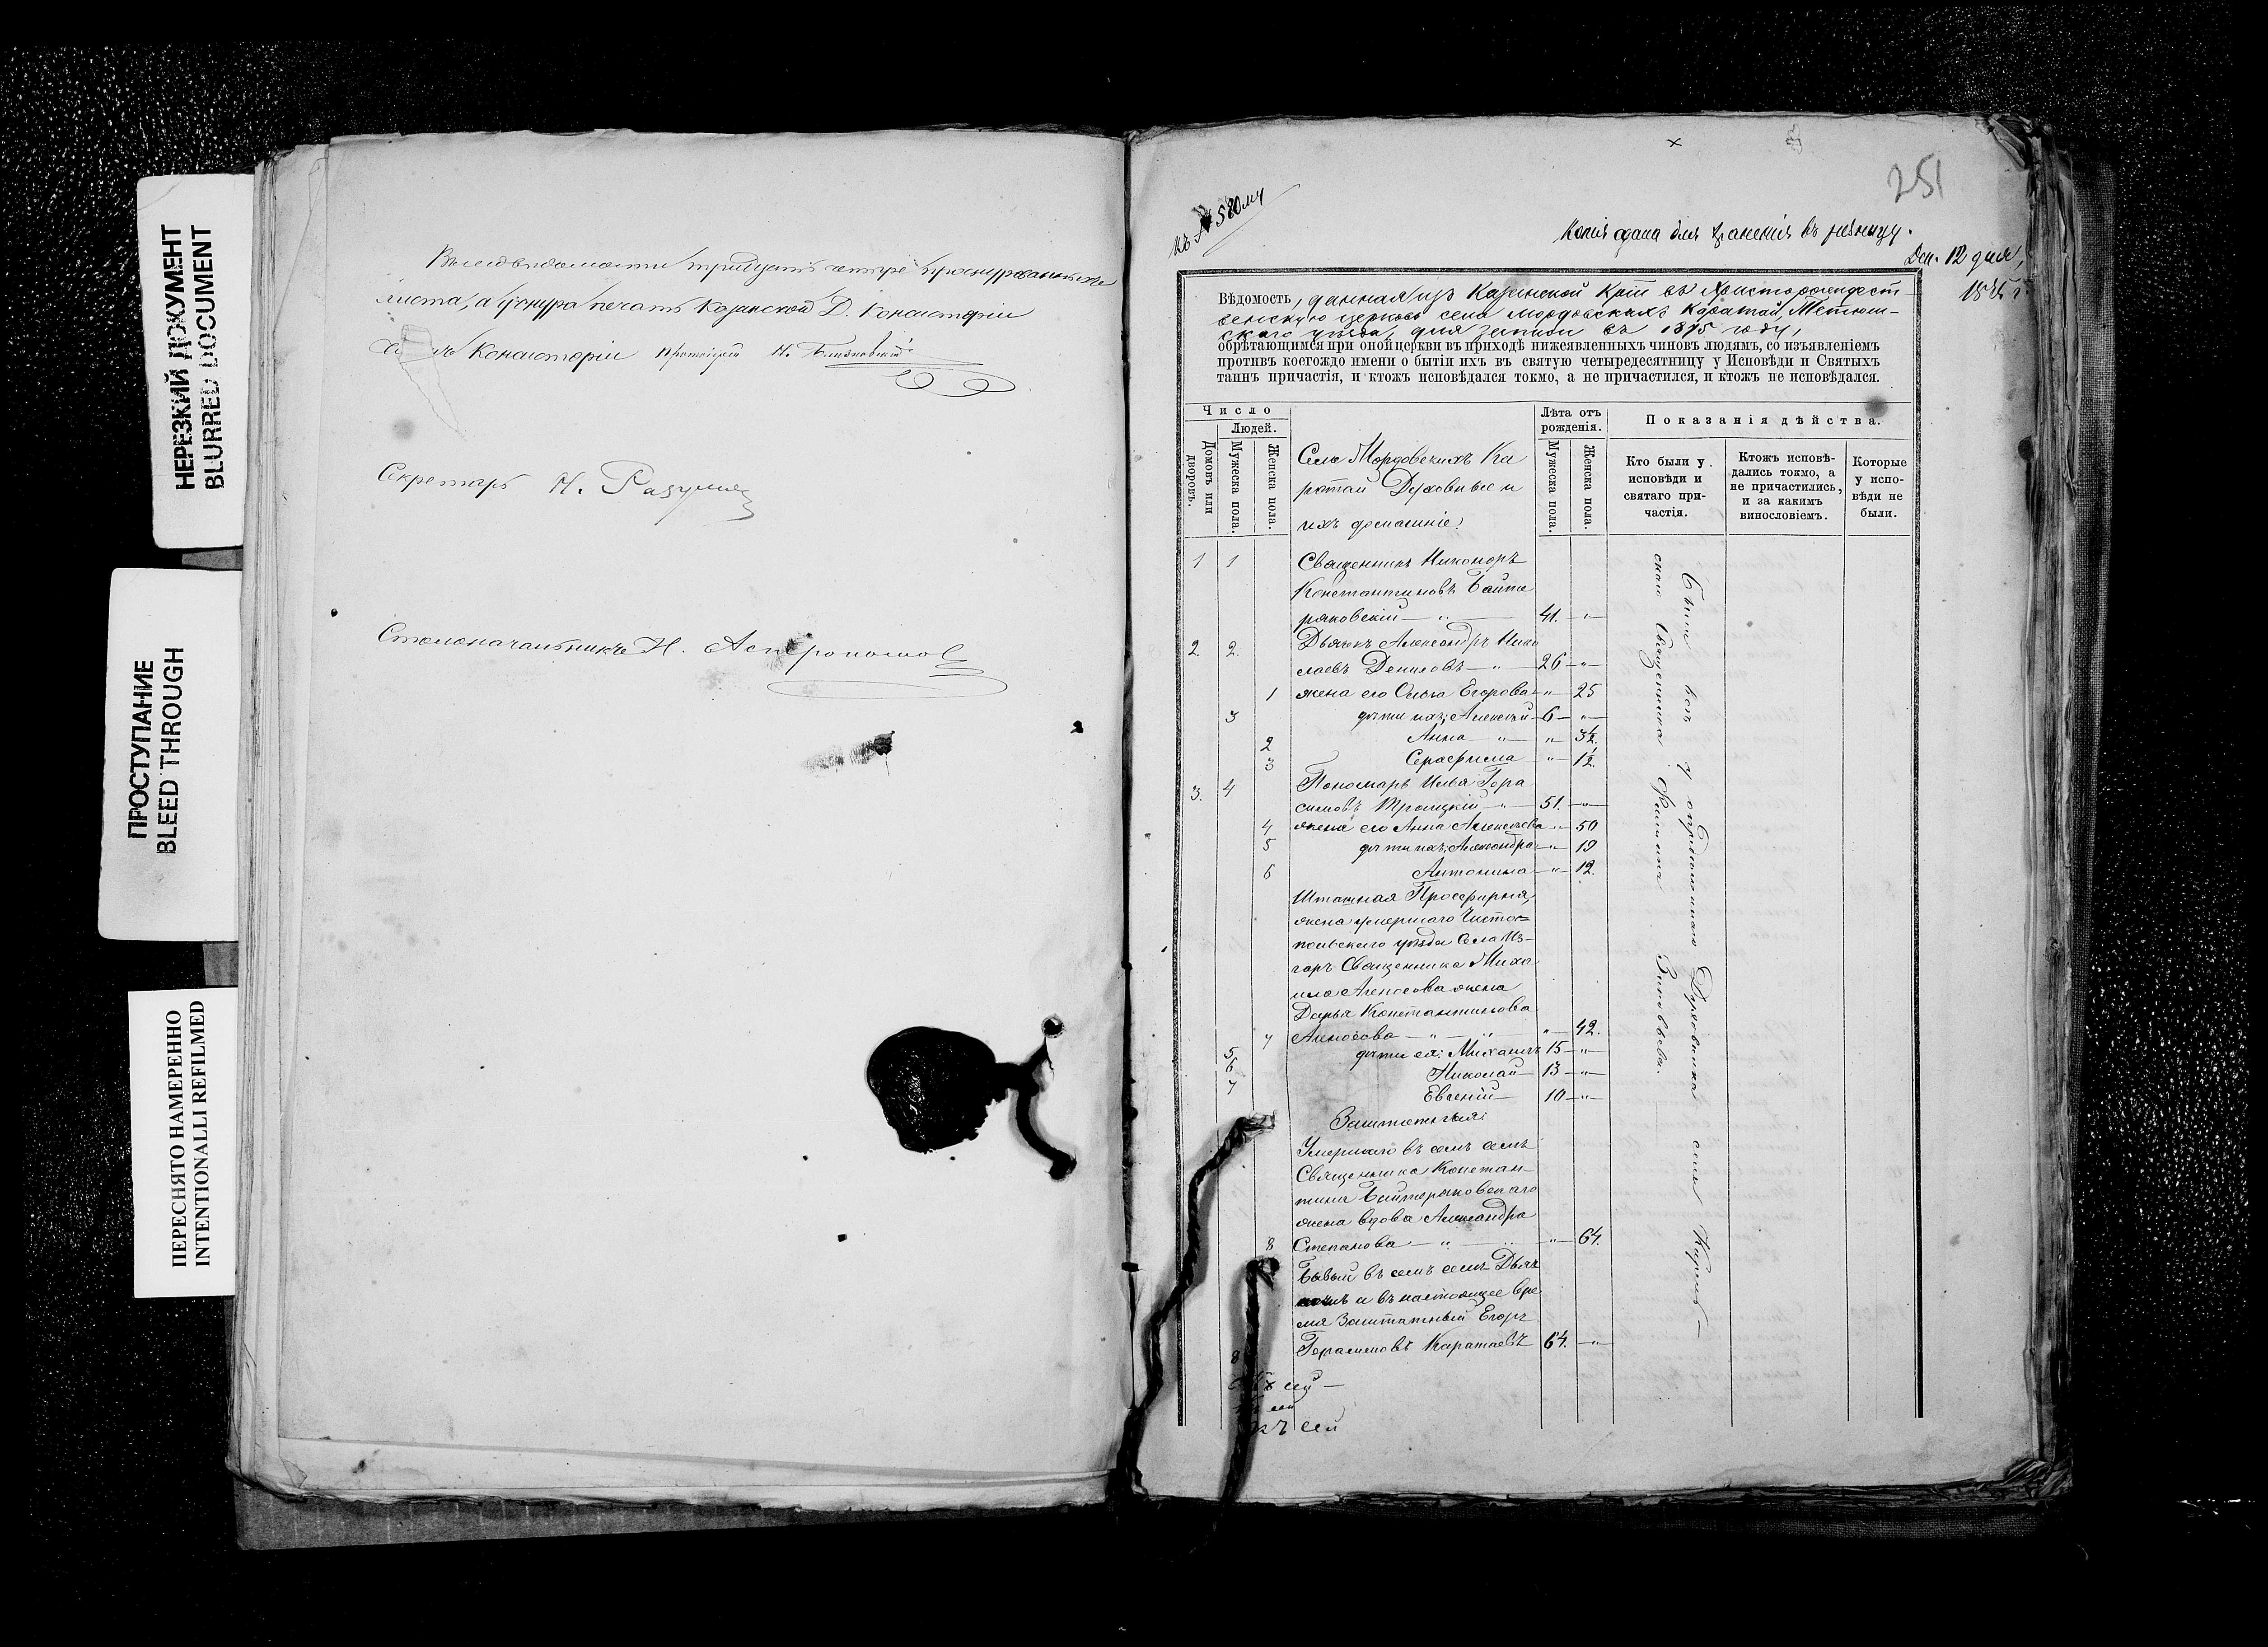 НЕРЕЗКИЙ ДОКУМЕНТ
BLURRED DOCUMENT
ПРОСТУПАНИЕ
BLEED THROUGH
ПЕРЕСНЯТО НАМЕРЕННО
INTENTIONALLI REFILMED
В сей ведомости тридцать четыре прошнурованныхъ
листа, а у шнура печать Казанской Д. Консисторіи
Консисторіи Протоіерей
Секретарь Н. Разумов
Столоначальникъ Н.
251
къ №
Копія сдана для храненія въ ризницу.
Дек. 12 дня,
1875 г.
Вѣдомость, данная изъ Казанской Кстіи въ Христорождест-
венскую церковь села Мордовскихъ Каратай, Тетюш-
скаго уѣзда, для записи въ 1875 году,
обрѣтающимся при оной церкви въ приходѣ нижеявленныхъ чиновъ людямъ, со изъявленіемъ
противъ коегождо имени о бытіи ихъ въ святую четыредесятницу у Исповѣди и Святыхъ
таинъ причастія, и ктожъ исповѣдался токмо, а не причастился, и ктожъ не исповѣдался.
Число
Людей.
Домовъ или дворовъ.
Мужеска пола.
Женска пола.
Села Мордовскихъ Ка
ратай Духовные и
ихъ домашніе:
Лѣта отъ рожденія.
Мужеска пола.
Женска пола.
Показанія дѣйства.
Кто были у исповѣди и святаго причастія.
Ктожъ исповѣ-
дались токмо, а
не причастились,
и за какимъ
винословіемъ.
Которые
у испо-
вѣди не
были.
1 1 Священникъ Никоноръ
Константиновъ Байте
ряковскій — 41. — „
2. 2. Дьячокъ Александръ Нико
лаевъ Дениловъ — „ — 26 — „
1 жена его Ольга Егорова — „ — 25
3 дѣти ихъ: Алексѣй — 6 — „
2 Анна — „ — „ — 3½.
3 Серафима „ — 1½.
3. 4 Пономарь Илья Гера
симовъ Троицкій — „ — 51. — „
4 жена его Анна Алексѣева — „ — 50
5 дѣти ихъ: Александра — „ — 19
6 Антонина — „ — 12.
Штатная Просфирня,
жена умершаго Чисто-
польскаго уѣзда Села Из-
гаръ Священника Миха
ила Аген­осова жена
Дарья Константинова
7 „ — 42.
5 дѣти ея: Михаилъ 15 — „
6 Николай — 13 — „
7 Евгеній — 10 — „
Заштатныя:
Умершаго въ семъ селѣ
Священника Констан-
тина Байтеряковскаго
жена вдова Александра
8 Степанова — „ — „ — „ — 64.
Бывый въ семъ селѣ Дьяч
комъ и въ настоящее вре
мя Заштатный Егоръ
8 Герасимовъ Каратаевъ 64. — „
къ сей
Были всѣ у опредѣленнаго Духовника села Кирель-
скаго Священника Филиппа Зиновьева.